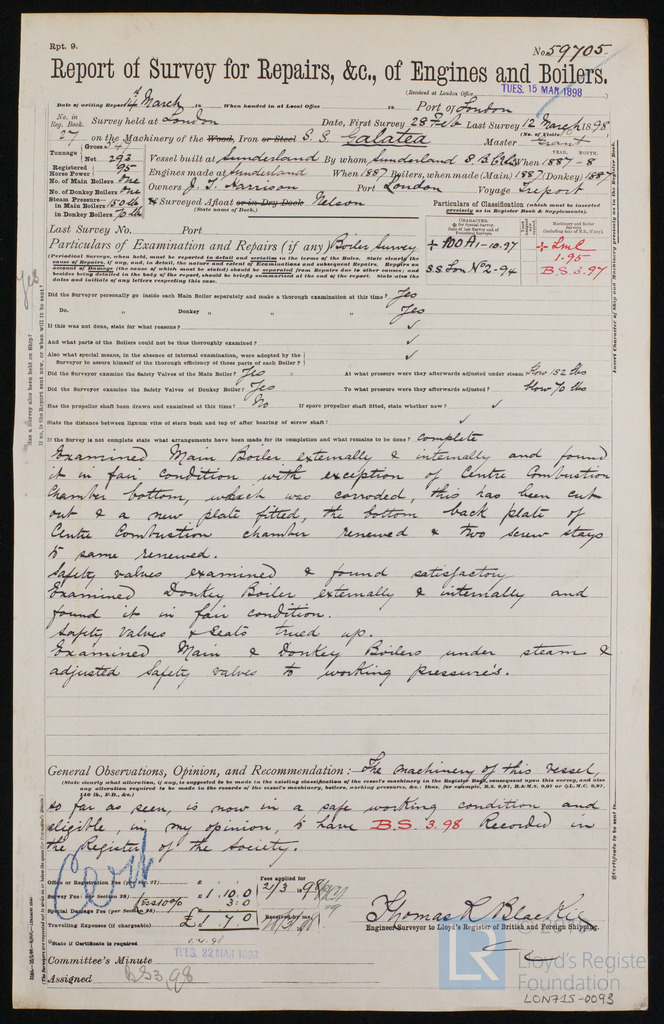 Rpt. 9.
No. 59705.
Report of Survey for Repairs, &c., of Engines and Boilers.
(Received at London Office
TUES. 15 MAR 1898
Date of writing Report 14 March When handed in at Local Office Port of London
No. in Reg. Book. Survey held at London Date, First Survey 28 Feb Last Survey 12 March 1898
(No. of Visits)
27 on the Machinery of the Wood, Iron or Steel S. S. Galatea Master Grant
Tonnage Gross 547
Net 293
Vessel built at Sunderland By whom Sunderland S. B. Co. When 1887-8
YEAR. MONTH.
Registered Horse Power 95
Engines made at Sunderland When 1887 Boilers, when made (Main) 1887 (Donkey) 1887
No. of Main Boilers One
No. of Donkey Boilers One
Owners J. T. Harrison Port London Voyage Treport
Steam Pressure in Main Boilers 150 lb
in Donkey Boilers 70 lb
If Surveyed Afloat or in Dry Dock Nelson
(State name of Dock.)
Particulars of Classification (which must be inserted precisely as in Register Book & Supplements).
Last Survey No. Port
CHARACTER.
Machinery and Boiler Surveys
Particulars of Examination and Repairs (if any) Boiler Survey
+ 100 A1-10.97
+ LMC 1.95
S.S. Lon No 2-94
B.S. 3.97
(Periodical Surveys, when held, must be reported in detail and seriatim in the terms of the Rules. State clearly the
cause of Repairs, if any, and, in detail, the nature and extent of Examination and subsequent Repairs. Repairs on
account of Damage (the cause of which must be stated) should be separated from Repairs due to other causes; and
besides being detailed in the body of the report, should be briefly summarised at the end of the report. State also the
dates and initials of any letters respecting this case.
Did the Surveyor personally go inside each Main Boiler separately and make a thorough examination at this time? Yes
Do. " Donkey " " " Yes
If this was not done, state for what reasons? ✓
And what parts of the Boilers could not be thoroughly examined? ✓
Also what special means, in the absence of internal examination, were adopted by the
Surveyor to assure himself of the thorough efficiency of those parts of each Boiler? ✓
Did the Surveyor examine the Safety Valves of the Main Boiler? Yes At what pressure were they afterwards adjusted under steam blow 152 lbs
Did the Surveyor examine the Safety Valves of Donkey Boiler? Yes To what pressure were they afterwards adjusted? blow 70 lbs
Has the propeller shaft been drawn and examined at this time? No If spare propeller shaft fitted, state whether new? ✓
State the distance between lignum vitæ of stern bush and top of after bearing of screw shaft? ✓
If the Survey is not complete state what arrangements have been made for its completion and what remains to be done? complete
Examined Main Boiler externally & internally and found
it in fair condition with exception of Centre Combustion
Chamber bottom, which was corroded, this has been cut
out & a new plate fitted, the bottom back plate of
Centre Combustion chamber renewed & two screw stays
to same renewed.
Safety valves examined & found satisfactory
Examined Donkey Boiler externally & internally and
found it in fair condition.
Safety Valves & Seats trued up.
Examined Main & Donkey Boilers under steam &
adjusted Safety valves to working pressure's.
General Observations, Opinion, and Recommendation :— The machinery of this vessel,
(State clearly what alteration, if any, is suggested to be made in the existing classification of the vessel's machinery in the Register Book, consequent upon this survey, and also
any alteration required to be made in the records of the vessel's machinery, boilers, working pressures, &c.: thus, for example, B.S. 9.97, B.&M.S. 9.97 or L.M.C. 9.97,
140 lb., F.D., &c.)
so far as seen, is now in a safe working condition and
eligible, in my opinion, to have B.S. 3.98 Recorded in
the Register of the Society.
Cert
Office or Registration Fee £ Fees applied for
Survey Fee £ 1.10.0 21/3 98
Less 10% 3.0
Special Damage Fee
Travelling Expenses (if chargeable) £ 1.7.0 Received by me,
State if Certificate is required
TUES. 22 MAR 1898
Thomas R Blackie
Engineer Surveyor to Lloyd's Register of British and Foreign Shipping.
Committee's Minute
Assigned BS 3,98
Yes
Has a Survey also been held on Ship?
If so, is the Report sent now, or when will it be sent?
Insert Character of Ship and Machinery precisely as in the Register Book.
LR
© Lloyd's Register Foundation
LON715-0093